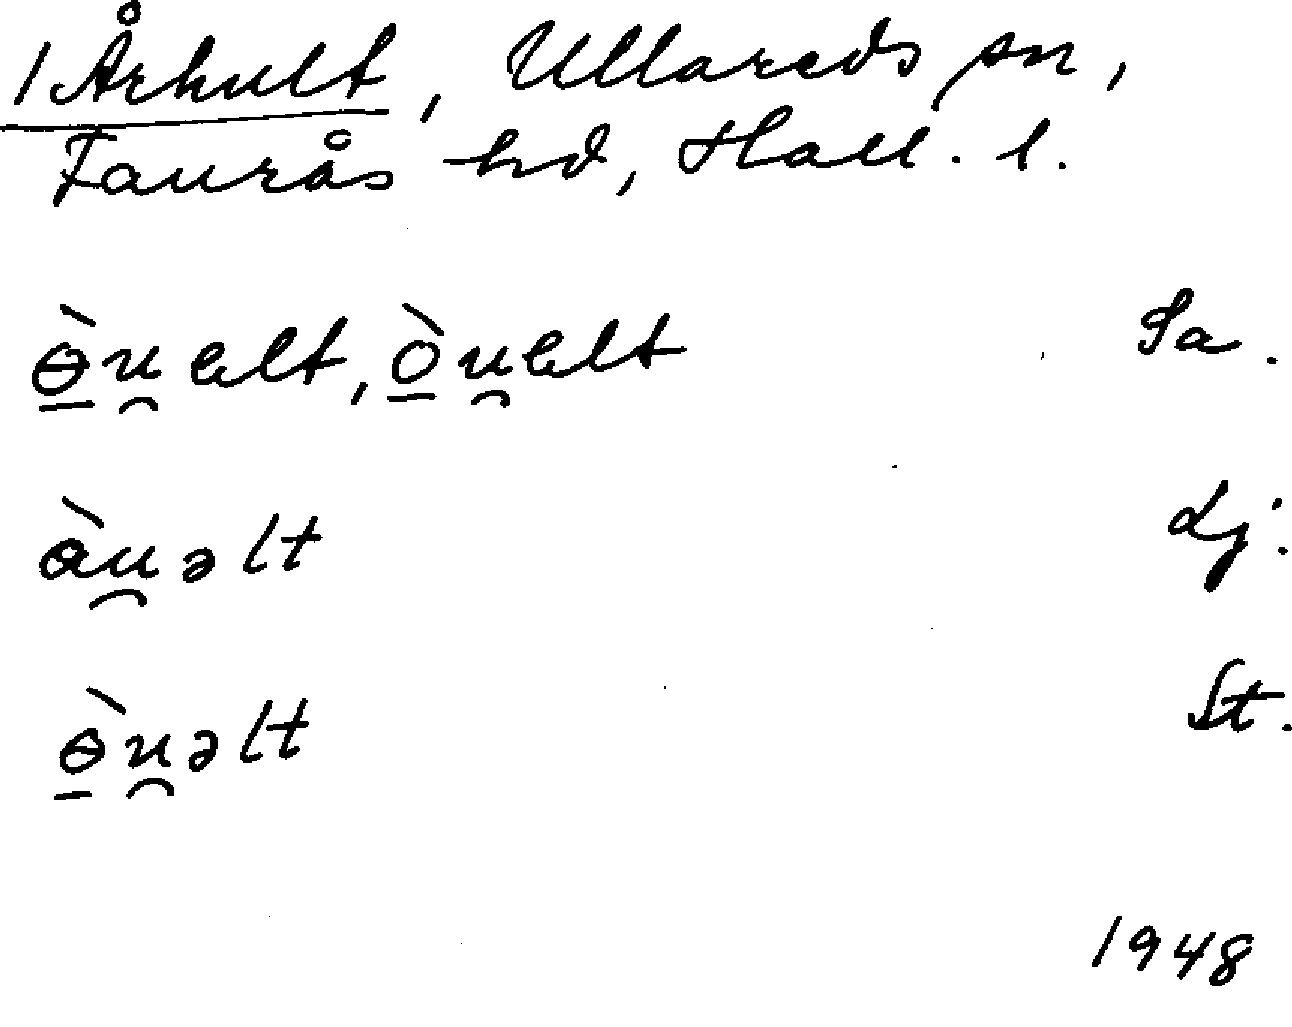 1 Århult, Ullareds sn,
Faurås hd, Hall. l.
ɵ̠̀u̯elt, ò̠u̯elt Sa.
àu̯əlt Lj.
ɵ̠̀u̯əlt St.
1948